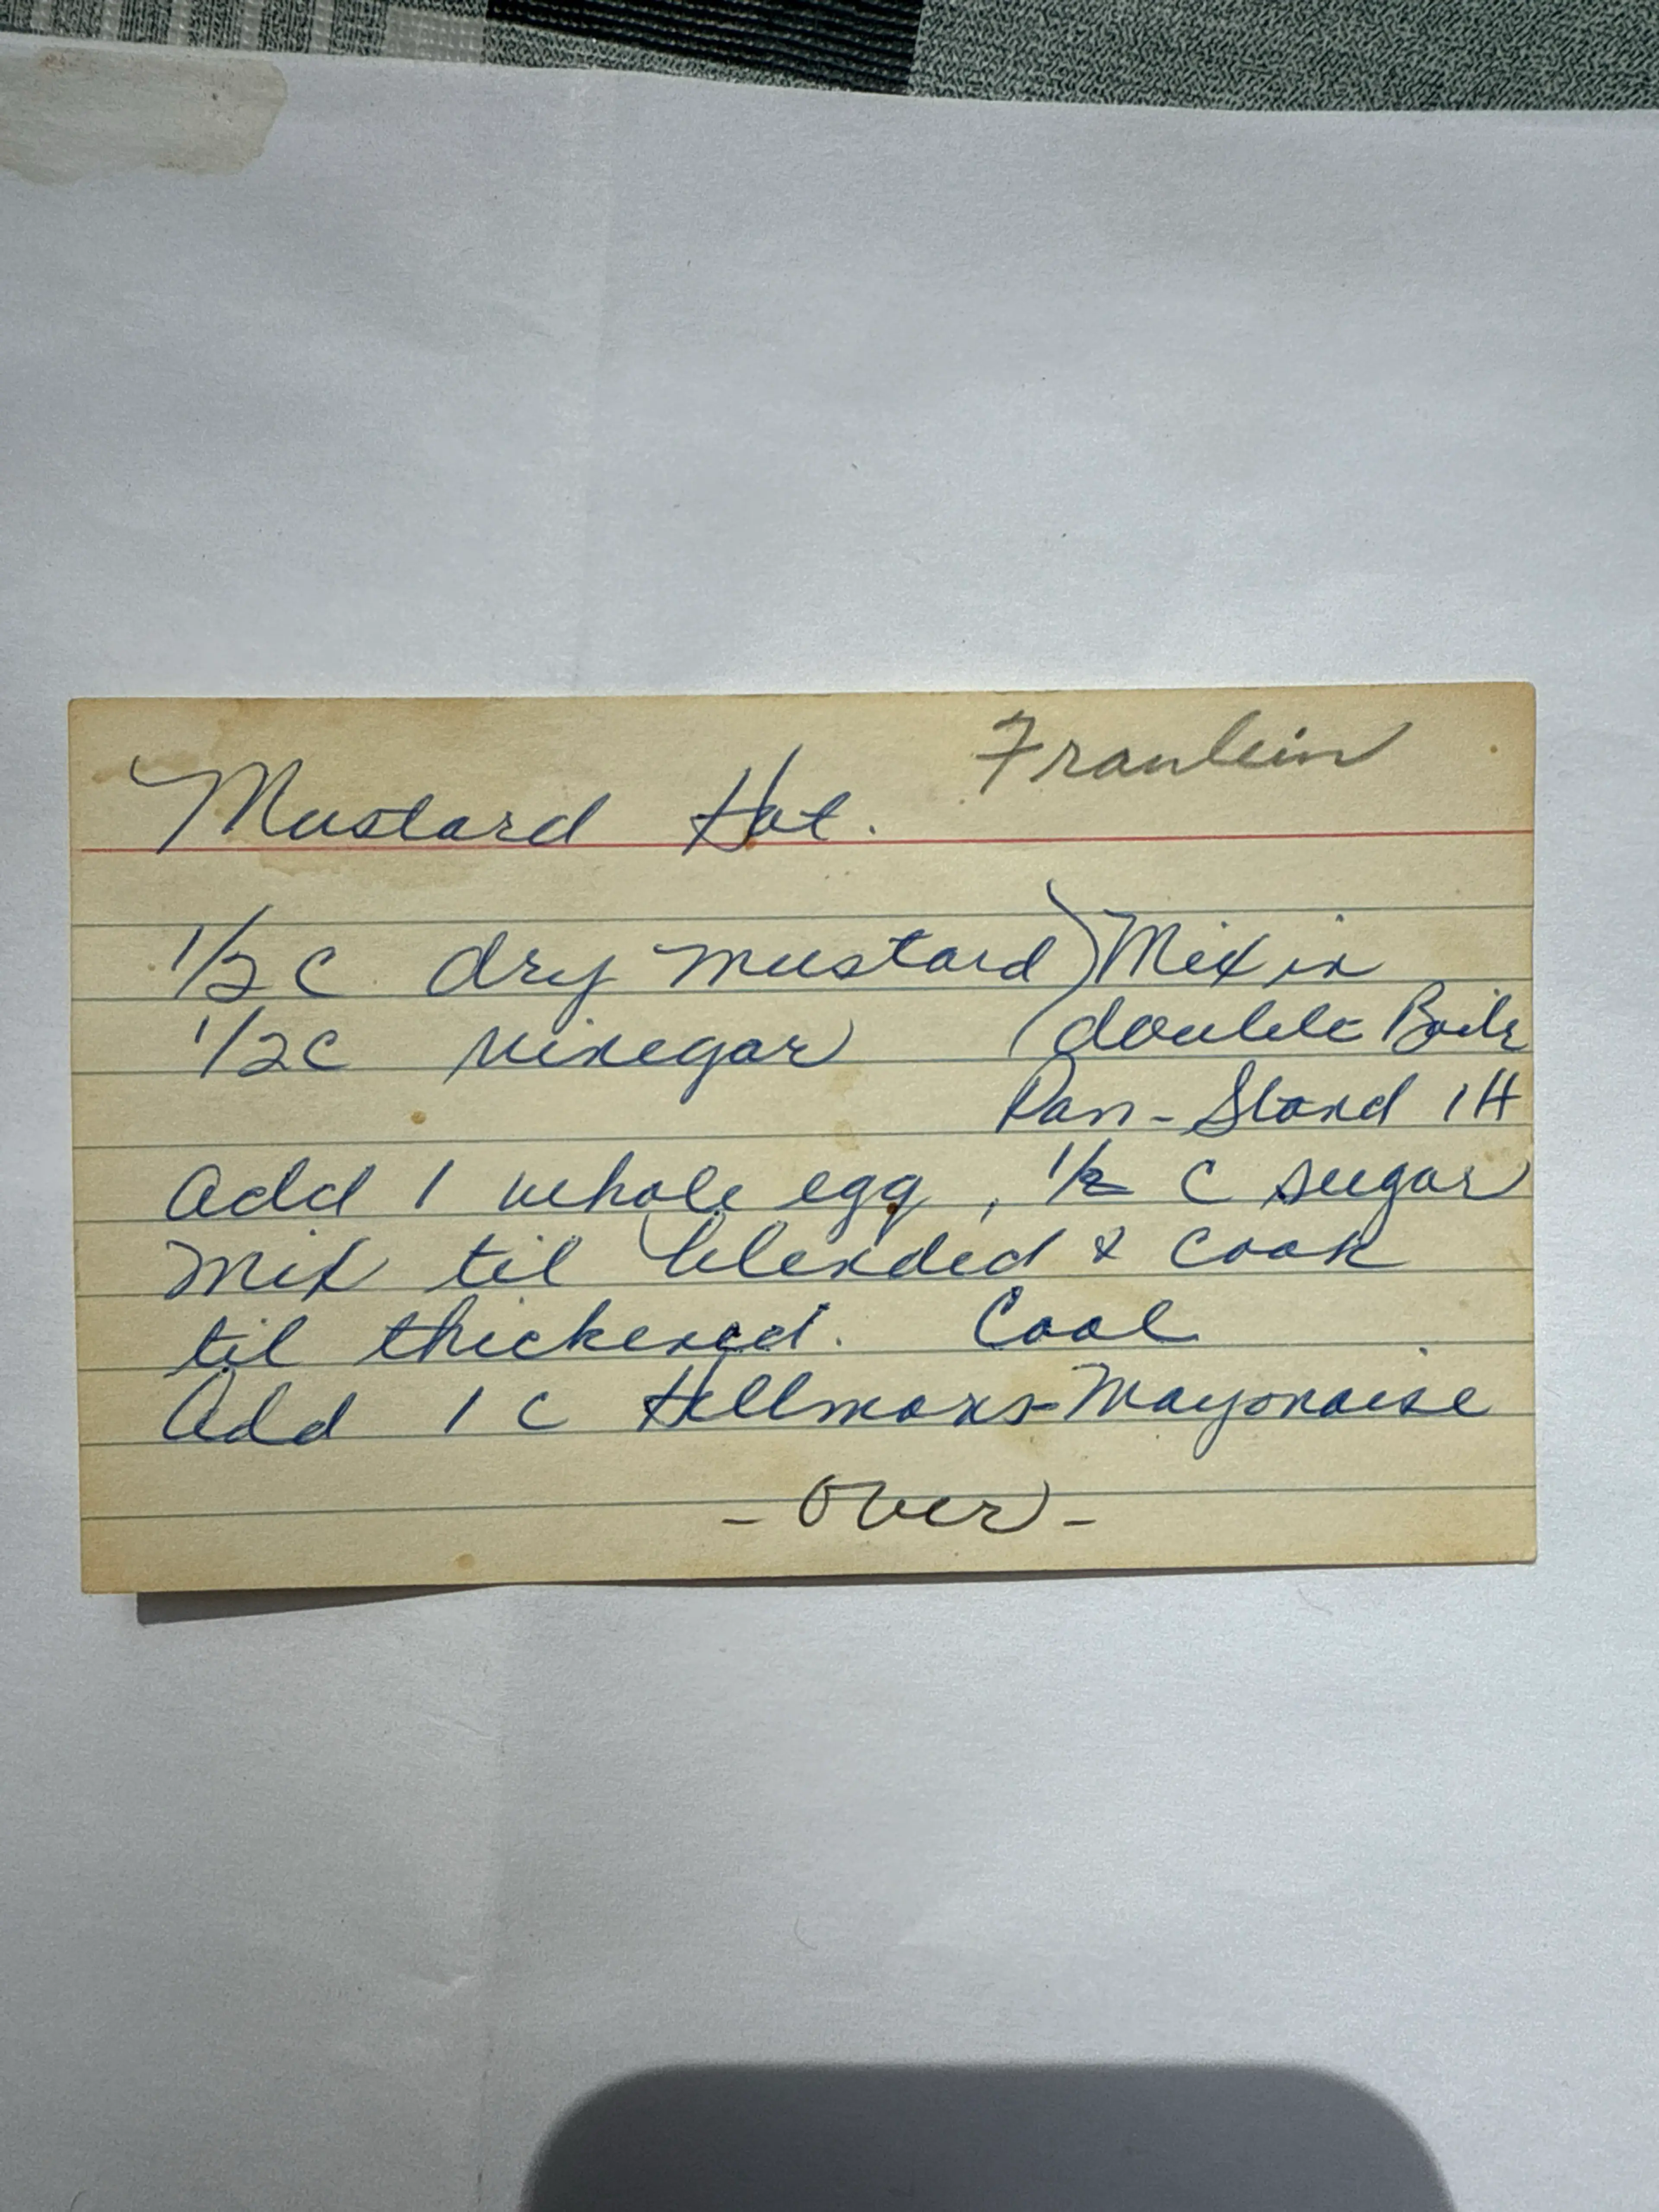 Fraulein
Mustard Hot.
1/2 C dry mustard) Mix in
1/2 C vinegar (double Boilr
Pan - Stand 1 H
Add 1 whole egg, 1/2 C sugar
Mix til blended & cook
til thickened. Cool
Add 1 C Hellmans-Mayonaise
- Over -